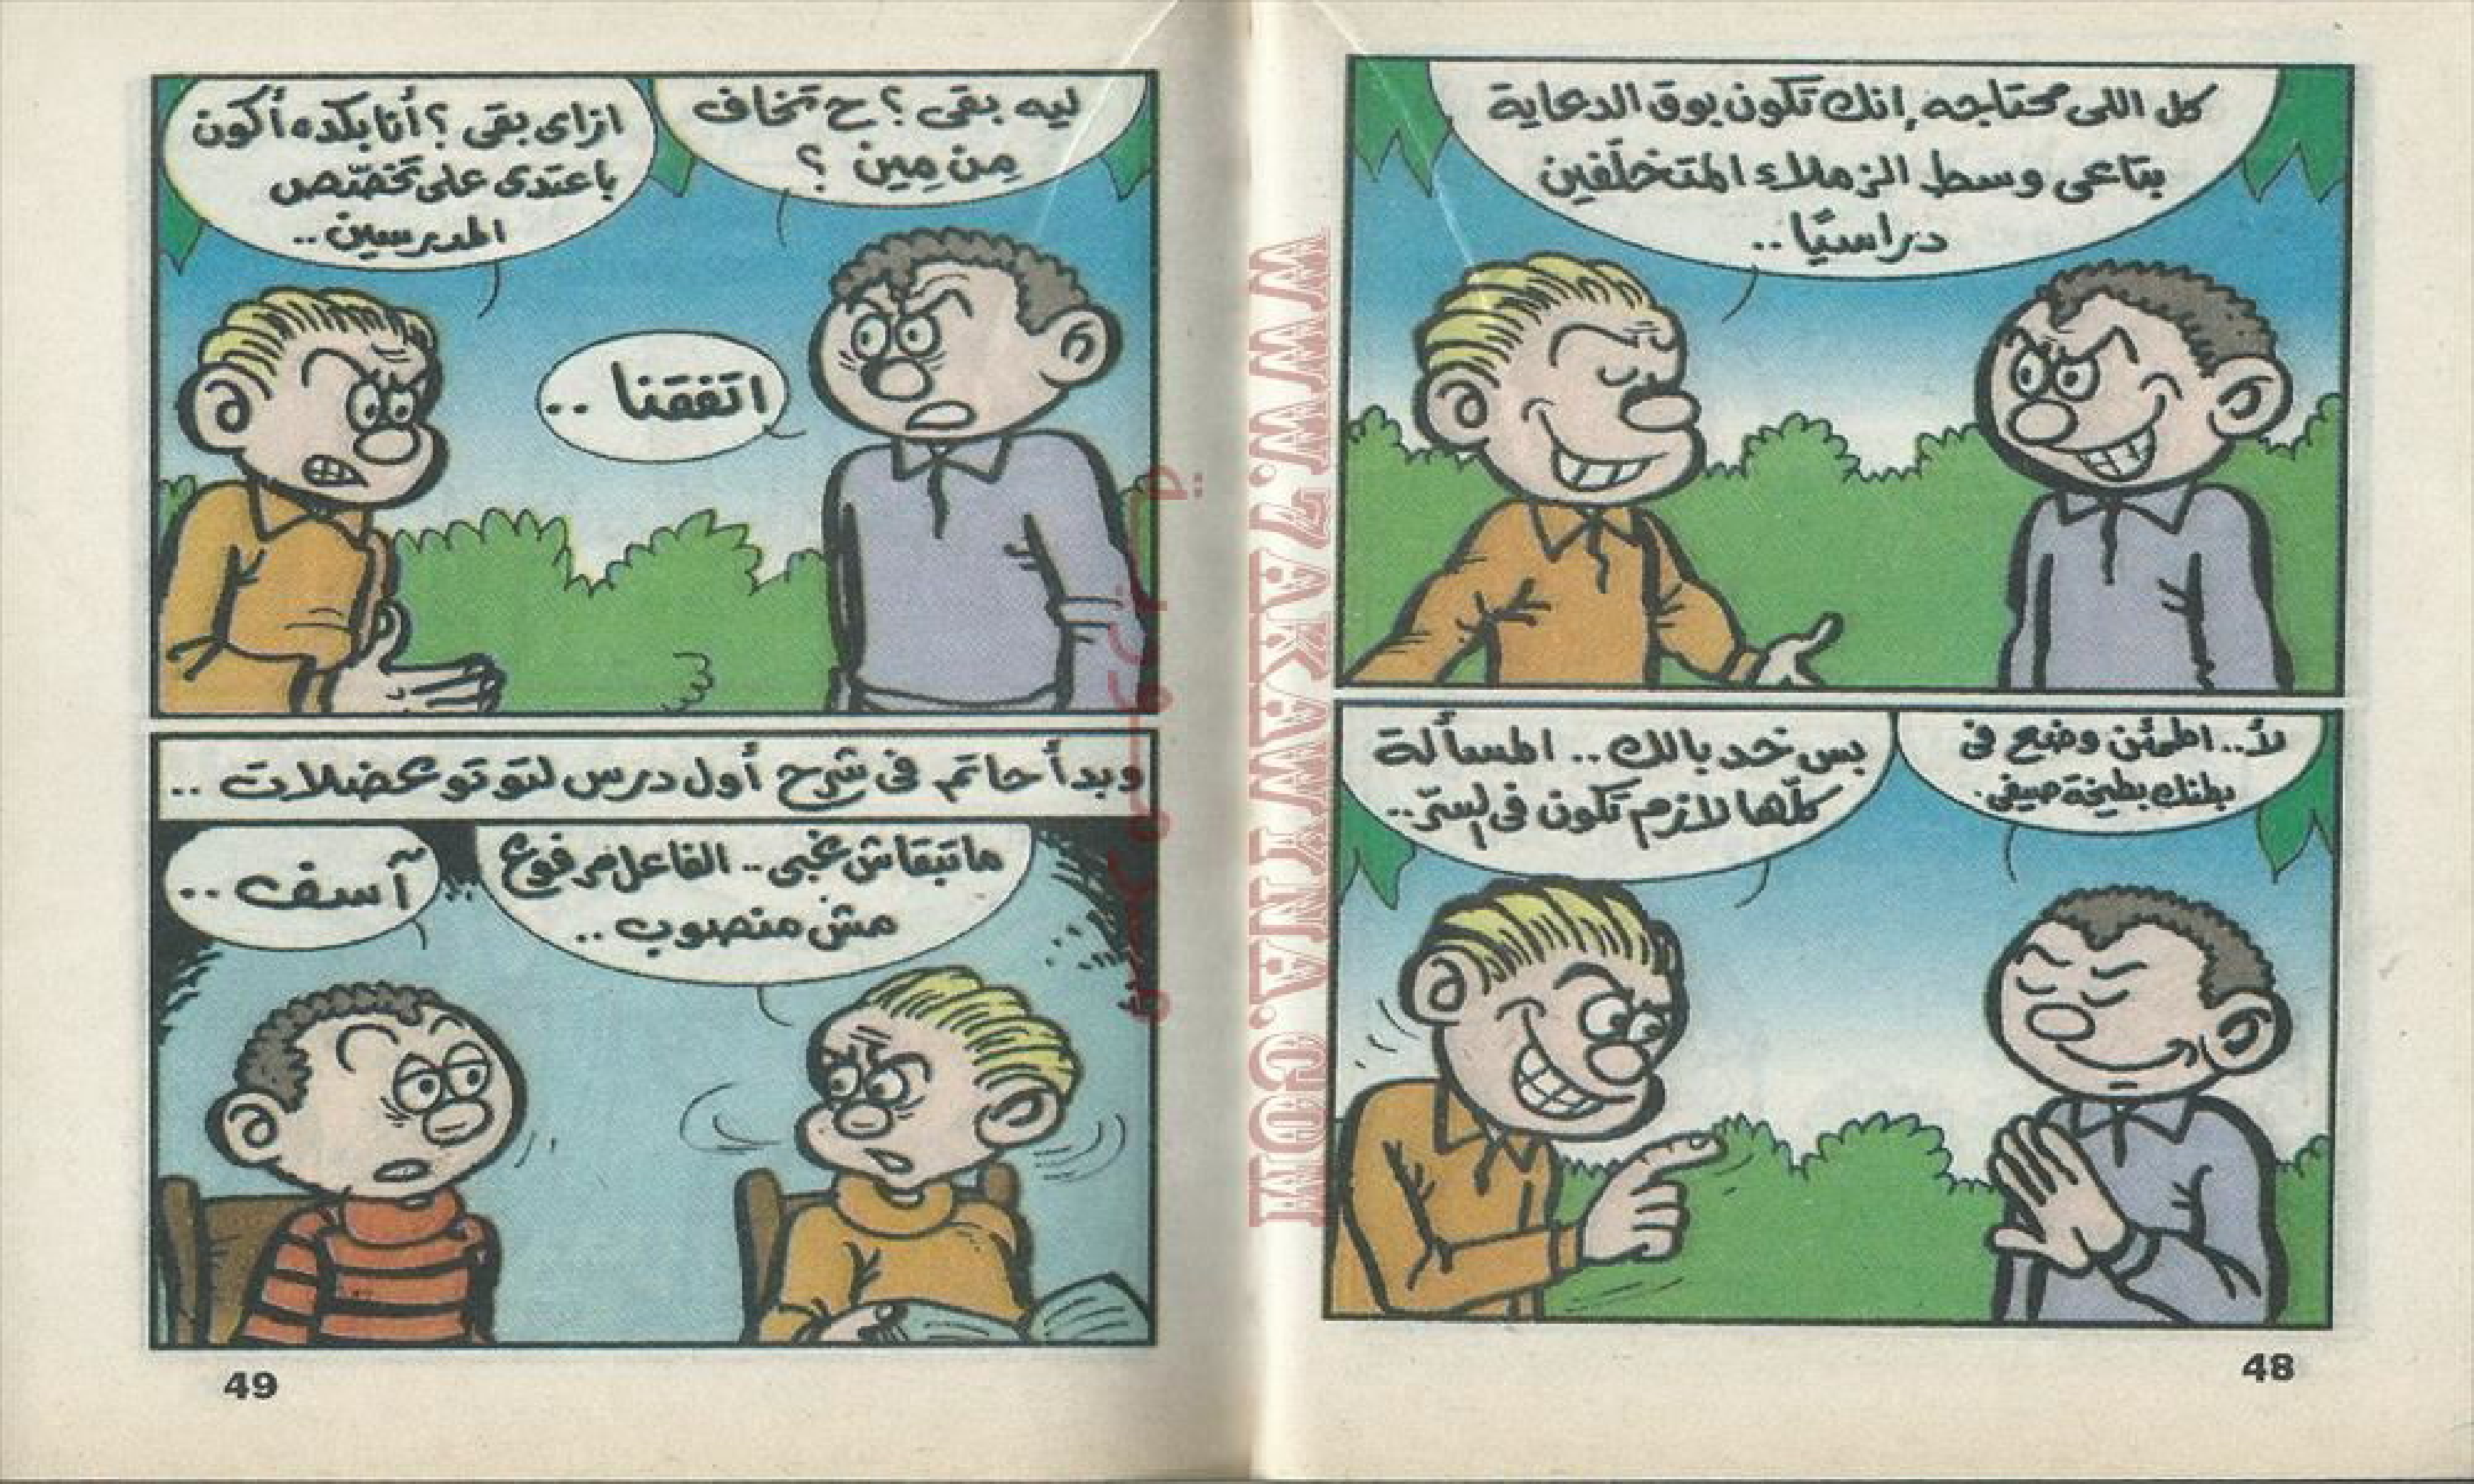 كل اللى محتاجه، إنك تكون بوق الدعاية
بتاعى وسط الزملاء المتخلّفين
دراسيًا..
لأ.. اطمئن وضع فى
بطنك بطيخة صيفى.
بس خد بالك.. المسألة
كلّها لازم تكون فى السرّ..
48
ليه بقى؟ ح تخاف
مِن مِين؟
ازاى بقى؟ أنا بكده أكون
باعتدى على تخصّص
المدرسين..
اتفقنا..
وبدأ حاتم فى شرح أول درس لتوتو عضلات..
ماتبقاش غبى.. الفاعل مرفوع
مش منصوب..
آسف..
49